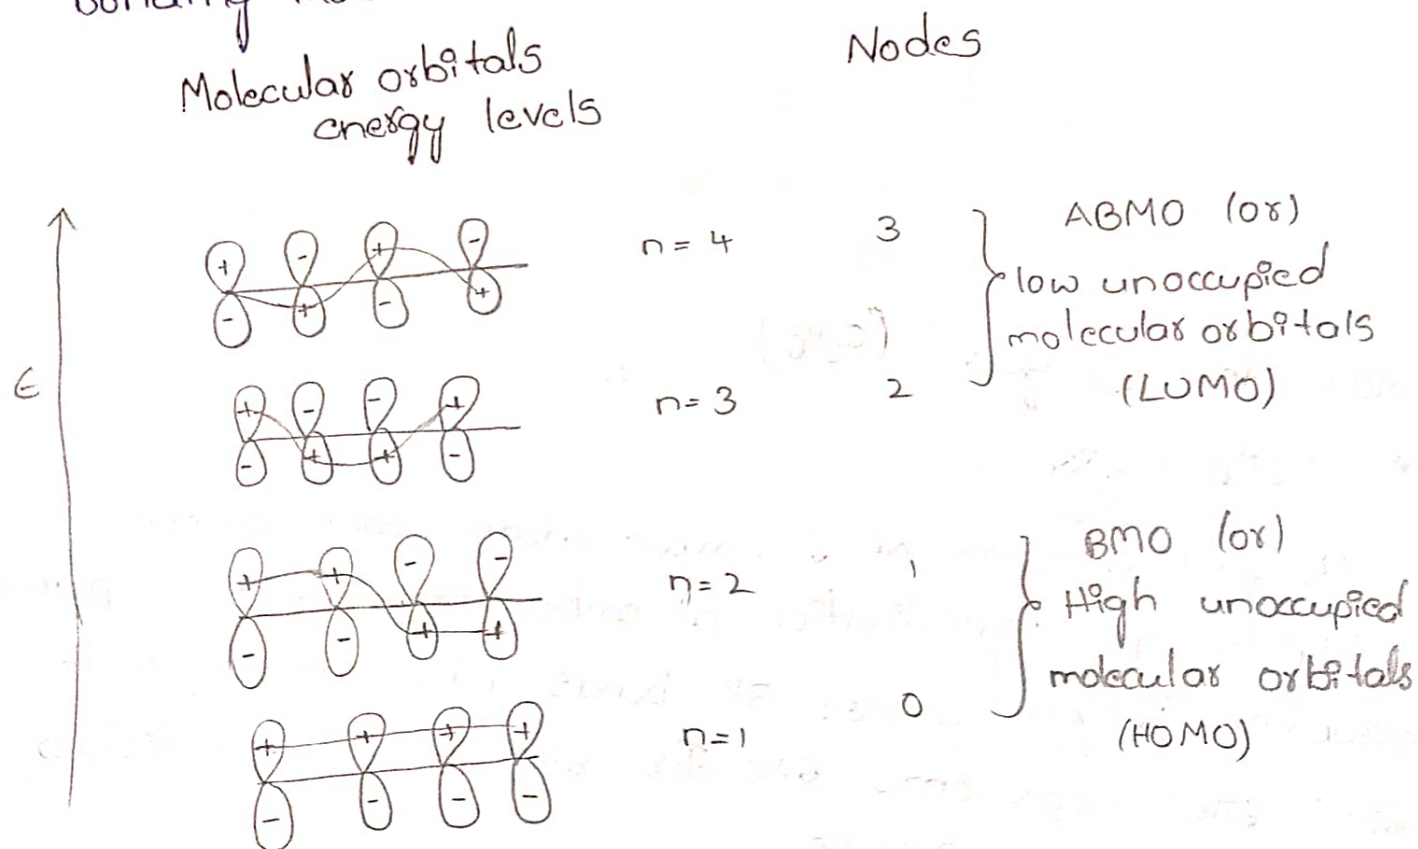 Molecular orbitals
energy levels
Nodes
E
+ - + -
- + - +
n = 4
3
ABMO (or)
low unoccupied
molecular orbitals
(LUMO)
+ - - +
- + + -
n = 3
2
+ + - -
- - + +
n = 2
1
BMO (or)
High unoccupied
molecular orbitals
(HOMO)
+ + + +
- - - -
n = 1
0